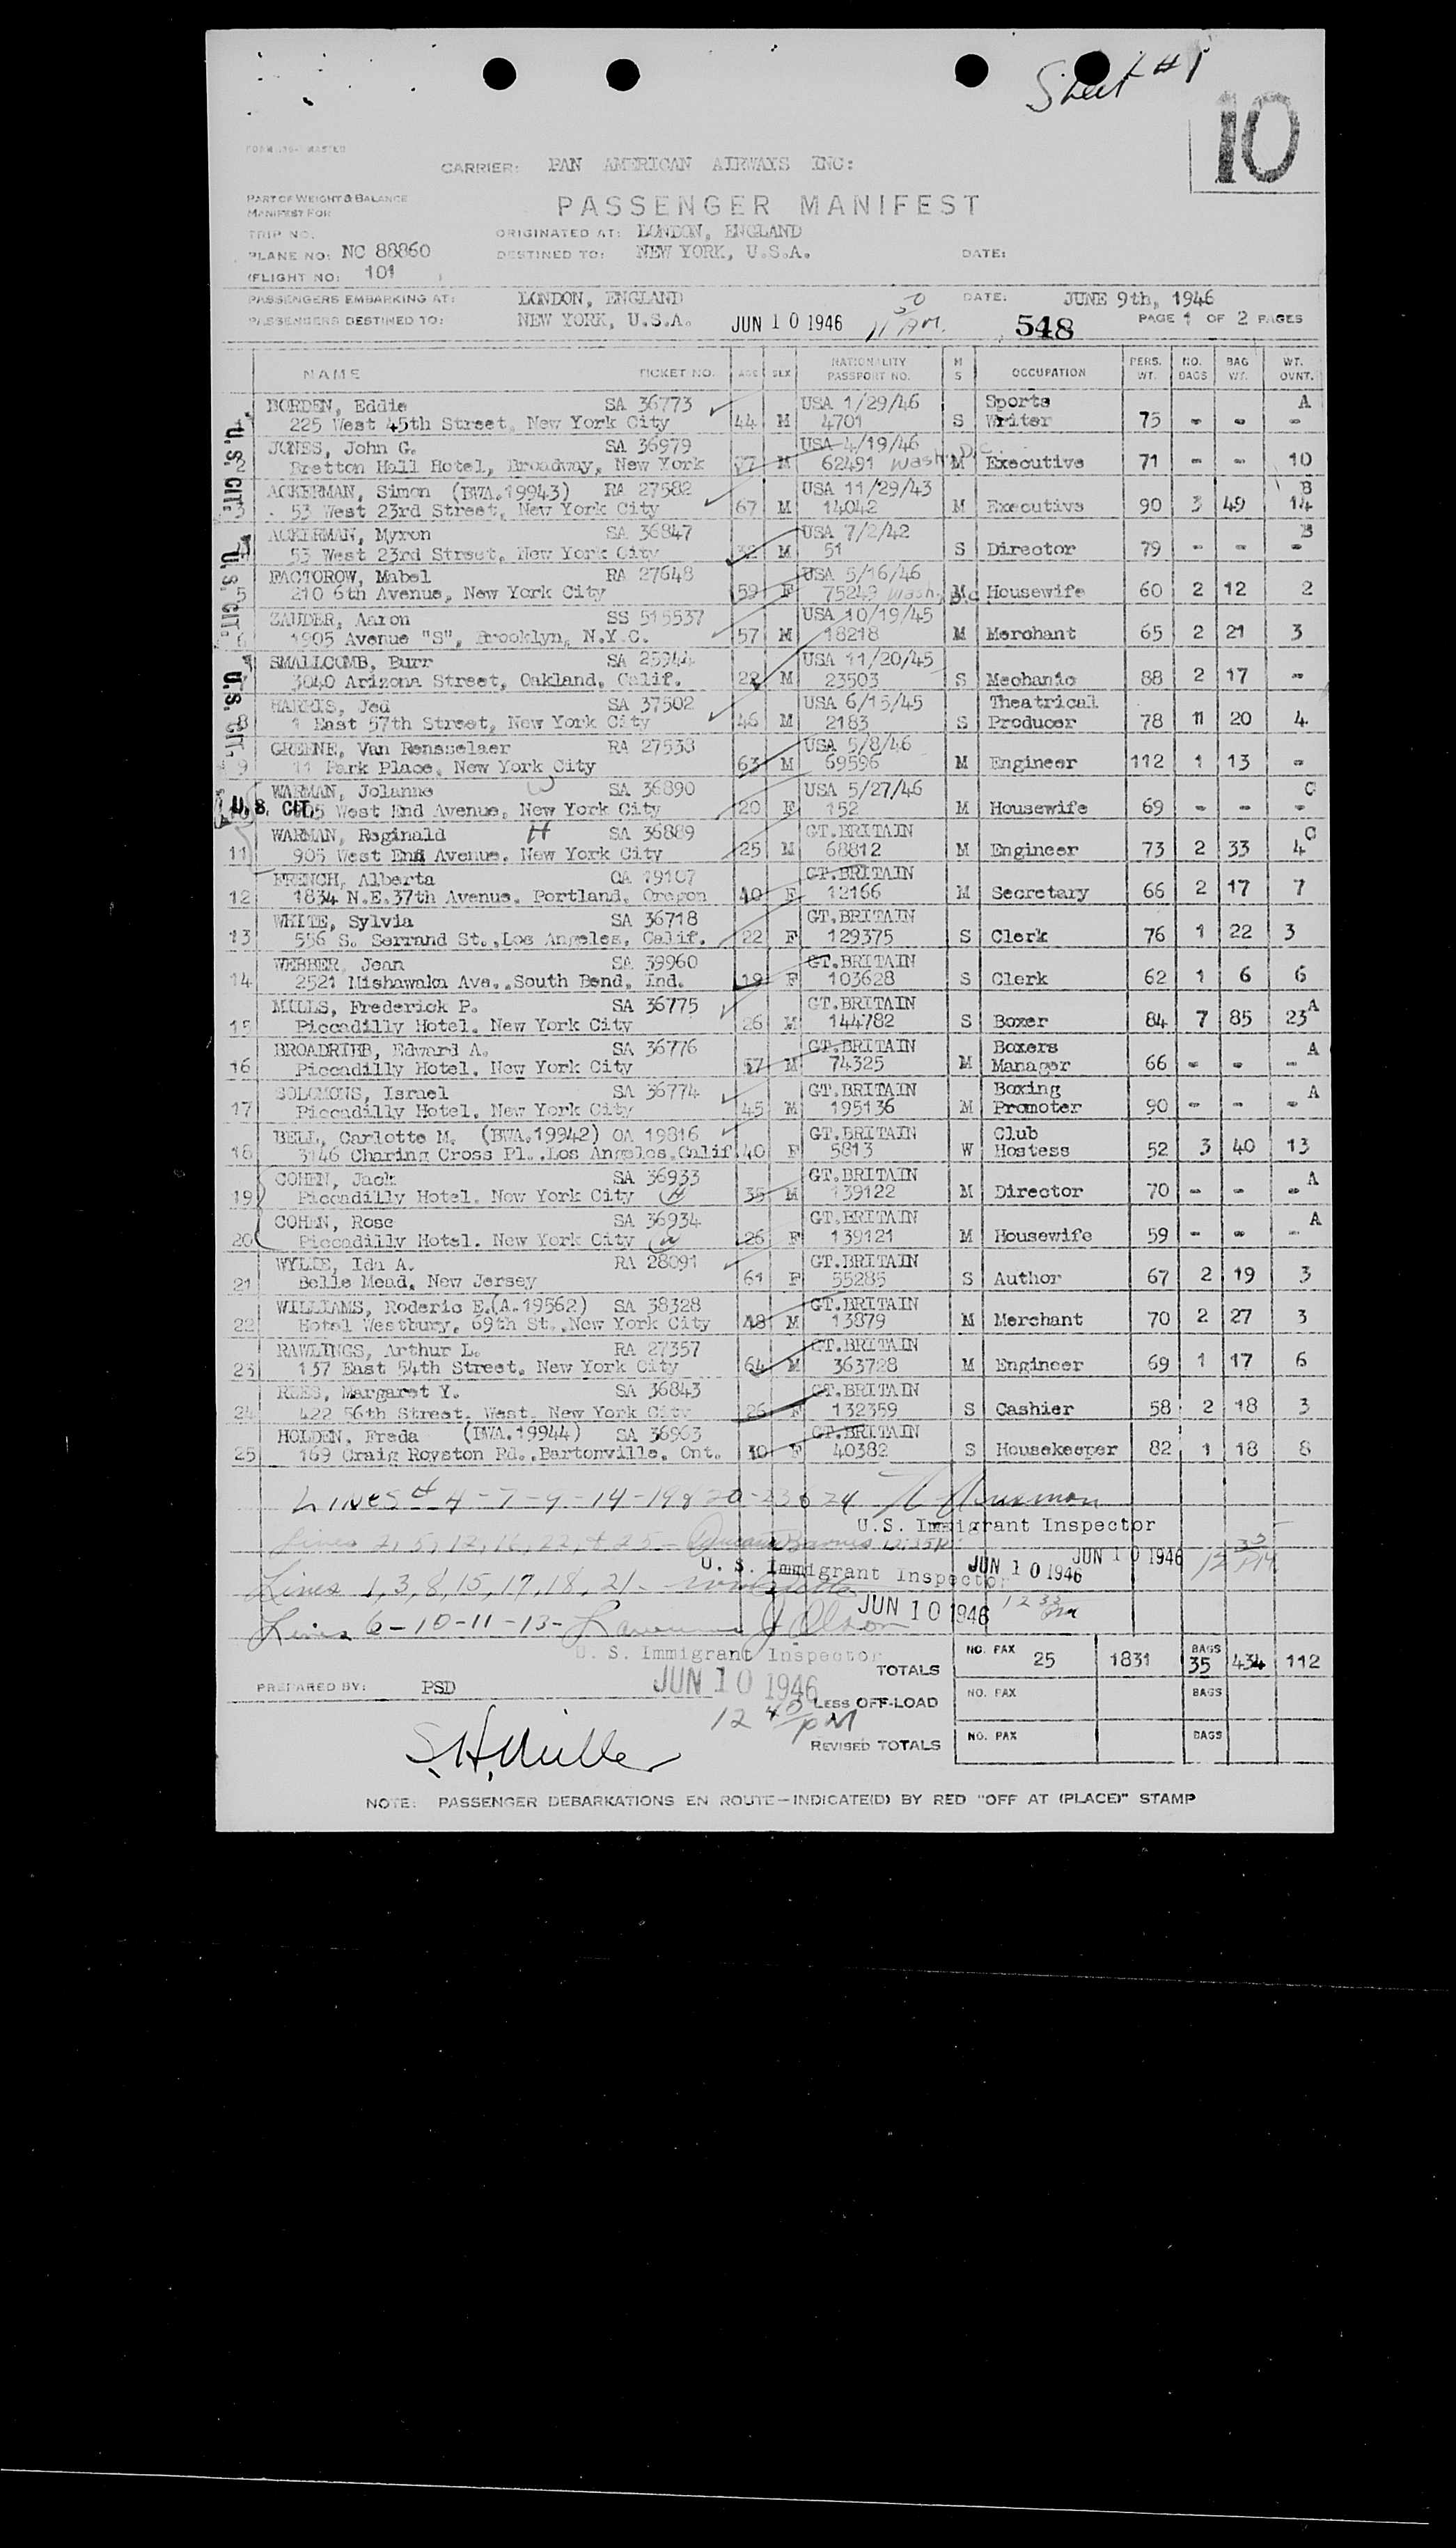 Sheet #1
10
CARRIER: PAN AMERICAN AIRWAYS INC:
PART OF WEIGHT & BALANCE
MANIFEST FOR
PASSENGER MANIFEST
TRIP NO.
ORIGINATED AT: LONDON, ENGLAND
PLANE NO: NC 88860 DESTINED TO: NEW YORK, U.S.A. DATE:
(FLIGHT NO: 101 )
PASSENGERS EMBARKING AT: LONDON, ENGLAND DATE: JUNE 9th, 1946
PASSENGERS DESTINED TO: NEW YORK, U.S.A. JUN 10 1946 11 50 AM. 548 PAGE 1 OF 2 PAGES
NAME TICKET NO. AGE SEX NATIONALITY PASSPORT NO. M S OCCUPATION PERS. WT. NO. BAGS BAG WT. WT. OVNT.
BORDEN, Eddie SA 36773 USA 1/29/46 Sports A
1 225 West 45th Street, New York City 44 M 4701 S Writer 75 - - -
JONES, John G. SA 36979 USA 4/19/46
2 Bretton Hall Hotel, Broadway, New York M 62491 Wash. D.C. M Executive 71 - - 10
ACKERMAN, Simon (BWA.19943) RA 27582 USA 11/29/43 B
3 53 West 23rd Street, New York City 67 M 14042 M Executive 90 3 49 14
ACKERMAN, Myron SA 36847 USA 7/2/42 B
53 West 23rd Street, New York City 32 M 51 S Director 79 - - -
FACTOROW, Mabel RA 27648 USA 5/16/46
5 210 6th Avenue, New York City 59 F 75249 Wash. D.C. M Housewife 60 2 12 2
ZAUDER, Aaron SS 515537 USA 10/19/45
6 1905 Avenue "S", Brooklyn, N.Y.C. 57 M 18218 M Merchant 65 2 21 3
SMALLCOMB, Burr SA 25944 USA 11/20/45
3040 Arizona Street, Oakland, Calif. 22 M 23503 S Mechanic 88 2 17 -
HARRIS, Jed SA 37502 USA 6/15/45 Theatrical
8 1 East 57th Street, New York City 46 M 2183 S Producer 78 11 20 4
GREENE, Van Rensselaer RA 27538 USA 5/8/46
9 11 Park Place, New York City 63 M 69596 M Engineer 112 1 13 -
WARMAN, Jolanne W SA 36890 USA 5/27/46 C
U.S. CIT. 905 West End Avenue, New York City 20 F 152 M Housewife 69 - - -
WARMAN, Reginald H SA 36889 GT.BRITAIN C
11 905 West End Avenue. New York City 25 M 68812 M Engineer 73 2 33 4
FRENCH, Alberta OA 19107 GT.BRITAIN
12 1834 N.E.37th Avenue. Portland, Oregon 40 F 12166 M Secretary 66 2 17 7
WHITE, Sylvia SA 36718 GT.BRITAIN
13 556 S. Serrand St.,Los Angeles, Calif. 22 F 129375 S Clerk 76 1 22 3
WEBBER, Jean SA 39960 GT.BRITAIN
14 2521 Mishawaka Ave.,South Bend, Ind. 19 F 103628 S Clerk 62 1 6 6
MILLS, Frederick P. SA 36775 GT.BRITAIN A
15 Piccadilly Hotel. New York City 26 M 144782 S Boxer 84 7 85 23
BROADRIBB, Edward A. SA 36776 GT.BRITAIN Boxers A
16 Piccadilly Hotel. New York City 57 M 74325 M Manager 66 - - -
SOLOMONS, Israel SA 36774 GT.BRITAIN Boxing A
17 Piccadilly Hotel. New York City 45 M 195136 M Promoter 90 - - -
BELL, Carlotte M. (BWA.19942) OA 19816 GT.BRITAIN Club
18 3146 Charing Cross Pl.,Los Angeles.Calif 40 F 5813 W Hostess 52 3 40 13
COHEN, Jack SA 36933 GT.BRITAIN A
19 Piccadilly Hotel. New York City H 35 M 139122 M Director 70 - - -
COHEN, Rose SA 36934 GT.BRITAIN A
20 Piccadilly Hotel. New York City W 26 F 139121 M Housewife 59 - - -
WYLIE, Ida A. RA 28091 GT.BRITAIN
21 Belle Mead, New Jersey 61 F 55285 S Author 67 2 19 3
WILLIAMS, Roderic E.(A.19562) SA 38328 GT.BRITAIN
22 Hotel Westbury, 69th St.,New York City 48 M 13879 M Merchant 70 2 27 3
RAWLINGS, Arthur L. RA 27357 GT.BRITAIN
23 137 East 54th Street, New York City 64 M 363728 M Engineer 69 1 17 6
REES, Margaret Y. SA 36843 GT.BRITAIN
24 422 56th Street, West. New York City 26 F 132359 S Cashier 58 2 18 3
HOLDEN, Freda (BWA.19944) SA 36963 GT.BRITAIN
25 169 Craig Royston Rd.,Bartonville, Ont. 30 F 40382 S Housekeeper 82 1 18 8
U.S. CIT.
U.S. CIT.
U.S. CIT.
Lines # 4-7-9-14-19 & 20-23 & 24
U.S. Immigrant Inspector
Lines 2, 5, 12, 16, 22, & 25 -
U. S. Immigrant Inspector JUN 10 1946 JUN 10 1946 12 35 PM
Lines 1, 3, 8, 15, 17, 18, 21-
JUN 10 1946 12 33 PM
Lines 6-10-11-13- Lawrence J Olson
U. S. Immigrant Inspector
TOTALS NO. PAX 25 1831 BAGS 35 434 112
PREPARED BY: PSD JUN 10 1946
LESS OFF-LOAD NO. PAX BAGS
12 40 PM
REVISED TOTALS NO. PAX BAGS
S.H. Miller
NOTE: PASSENGER DEBARKATIONS EN ROUTE—INDICATE(D) BY RED "OFF AT (PLACE)" STAMP